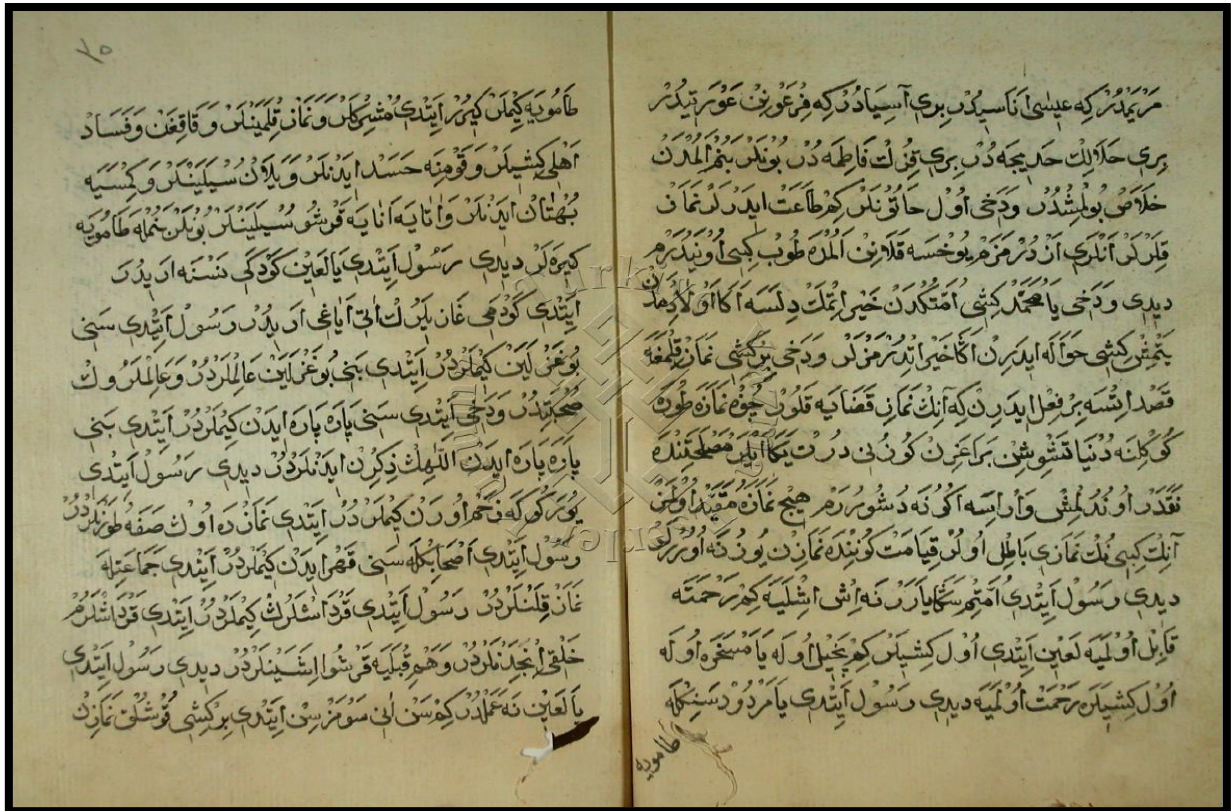 مَرْيَمْدُرْ كِه عِيسٰى اَنَاسِيدُرْ بِرِى آسِيَادُرْ كِه فِرْعَوْنِڭْ عَوْرَتِيدُرْ
بِرِى حَلَالِڭْ خَدِيجَه دُرْ بِرِى قِزِڭْ فَاطِمَه دُرْ بُونْلَرْ بَنُمْ اَلُمْدَنْ
خَلَاصْ بُولْمِشْدُرْ وَدَخِى اُولْ خَاتُونْلَرْ كِمْ طَاعَتْ اِيدَرْلَرْ نَمَازْ
قِلَرْلَرْ اَنْلَرِى اَزْدُرْمَزَمْ يُوخْسَه قَلَانِنْ اَلُمْدَه طُوبْ كِبِى اُوينَدُرَمْ
دِيدِى وَدَخِى يَا مُحَمَّدْ كِشِى اُمَّتُكْدَنْ خَيْرْ اِتْمَكْ دِلَسَه اَكَا اَوْلَادُمْدَنْ
يَتْمِشْ كِشِى حَوَالَه اِيدَرِنْ اَكَا خَيْرْ اِتْدُرْمَزْلَرْ وَدَخِى بِرْ كِشِى نَمَازْ قِلْمَغَه
قَصْدْ اِتْسَه بِرْ فِعْلْ اِيدَرِنْ كِه آنِكْ نَمَازِنْ قَضَايَه قَلُورْ چُونْ نَمَازَه طُورَه
كُوكْلِنَه دُنْيَا تَشْوِيشِنْ بَرَاغِرِنْ مَصْلَحَتِنْدَه
نَقَدَرْ اُونُدُلْمِشْ وَارِسَه اَكُونَه دُشُورُرَمْ هِيچْ نَمَازَه مُقَيَّدْ اُولْمَزْ
آنِكْ كِبِى نُكْ نَمَازِى بَاطِلْ اُولُرْ قِيَامَتْ كُونِنْدَه نَمَازِنْ يُوزُنَه اُورُرْلَرْ
دِيدِى رَسُولْ اَيِتْدِى اُمَّتِمْ سَكَا يَارَرْ نَه اِيشْ اِشْلَيَه كِمْ رَحْمَتَه
قَابِلْ اُولْمَيَه لَعِينْ اَيِتْدِى اُولْ كِشِيلَرْ كِمْ بَخِيلْ اُولَه يَا مَسْخَرَه اُولَه
اُولْ كِشِيلَرَه رَحْمَتْ اُولْمَيَه دِيدِى رَسُولْ اَيِتْدِى يَا مَرْدُودْ سَنِكْلَه
طامويه
٧٥
طَامُويَه كِيمْلَرْ كِيرُرْ اَيِتْدِى مُشْرِكْلَرْ وَنَمَازْ قِلْمَيَنْلَرْ وَفَسَادْ
اَهْلِى كِشِيلَرْ وَقَوْمِنَه حَسَدْ اِيدَنْلَرْ وَيَلَانْ سُويْلَيَنْلَرْ وَكِمْسَيَه
بُهْتَانْ اِيدَنْلَرْ وَاتَايَه اَنَايَه قَرْشُو سُويْلَيَنْلَرْ بُونْلَرْ بَنُمْلَه طَامُويَه
كِيرَه لَرْ دِيدِى رَسُولْ اَيِتْدِى يَا لَعِينْ كَوْدَكِى نَسْنَه اَرِيدُرْ
اَيِتْدِى كَوْدَمِى غَازِيلَرْ آتِى اَيَاغِى اَرِيدُرْ رَسُولْ اَيِتْدِى سَنِى
بُوغَزْلَيَنْ كِيمْلَرْدُرْ اَيِتْدِى بَنِى بُوغَزْلَيَنْ عَالِمْلَرْدُرْ وَعَالِمْلَرُوكْ
صُحْبَتِيدُرْ وَدَخِى اَيِتْدِى سَنِى پَارَه پَارَه اِيدَنْ كِيمْلَرْدُرْ اَيِتْدِى بَنِى
پَارَه پَارَه اِيدَنْ اَللّٰهِكْ ذِكْرِنْ اِيدَنْلَرْدُرْ دِيدِى رَسُولْ اَيِتْدِى
يُورَكُوكَه زَخْمْ اُورَنْ كِيمْلَرْدُرْ اَيِتْدِى نَمَازْدَه اُوكْ صَفَه طُورَنْلَرْدُرْ
رَسُولْ اَيِتْدِى سَنِى قَهْرْ اِيدَنْ كِيمْلَرْدُرْ اَيِتْدِى جَمَاعَتِلَه
نَمَازْ قِلَنْلَرْدُرْ رَسُولْ اَيِتْدِى قَرْدَاشْلَرُكْ كِيمْلَرْدُرْ اَيِتْدِى قَرْدَاشْلَرُمْ
خَلْقِى اِنْجِدَنْلَرْدُرْ وَهَمْ قِبْلَيَه قَرْشُو اِشَيَنْلَرْدُرْ دِيدِى رَسُولْ اَيِتْدِى
يَا لَعِينْ نَه عَمَلْدُرْ كِمْ سَنْ اَنِى سَوْمَزْسِنْ اَيِتْدِى بِرْ كِشِى قُوشْلُقْ نَمَازِنْ